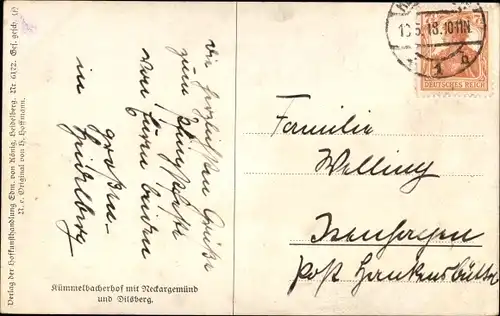 Verlag der Hofkunsthandlung Edm. von König, Heidelberg. Nr 6172. Ges. gesch. (e)
N. e. Original von H. Hoffmann.
Die herzlichsten Grüße
zum Pfingstfeste
von Euren beiden
großen
in Heidelberg
Kümmelbacherhof mit Neckargemünd
und Dilsberg.
13.5.18.10-11N.
1 b
DEUTSCHES REICH
Familie
Welling
Isenhagen
Post Hankensbüttel